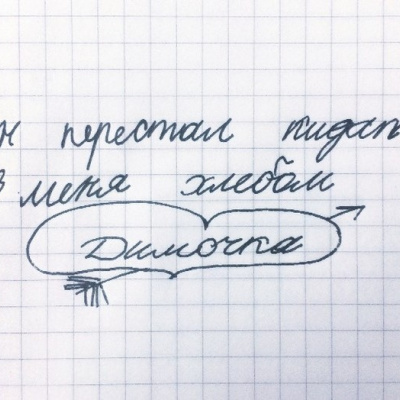 н перестал кидат
в меня хлебом
Димочка